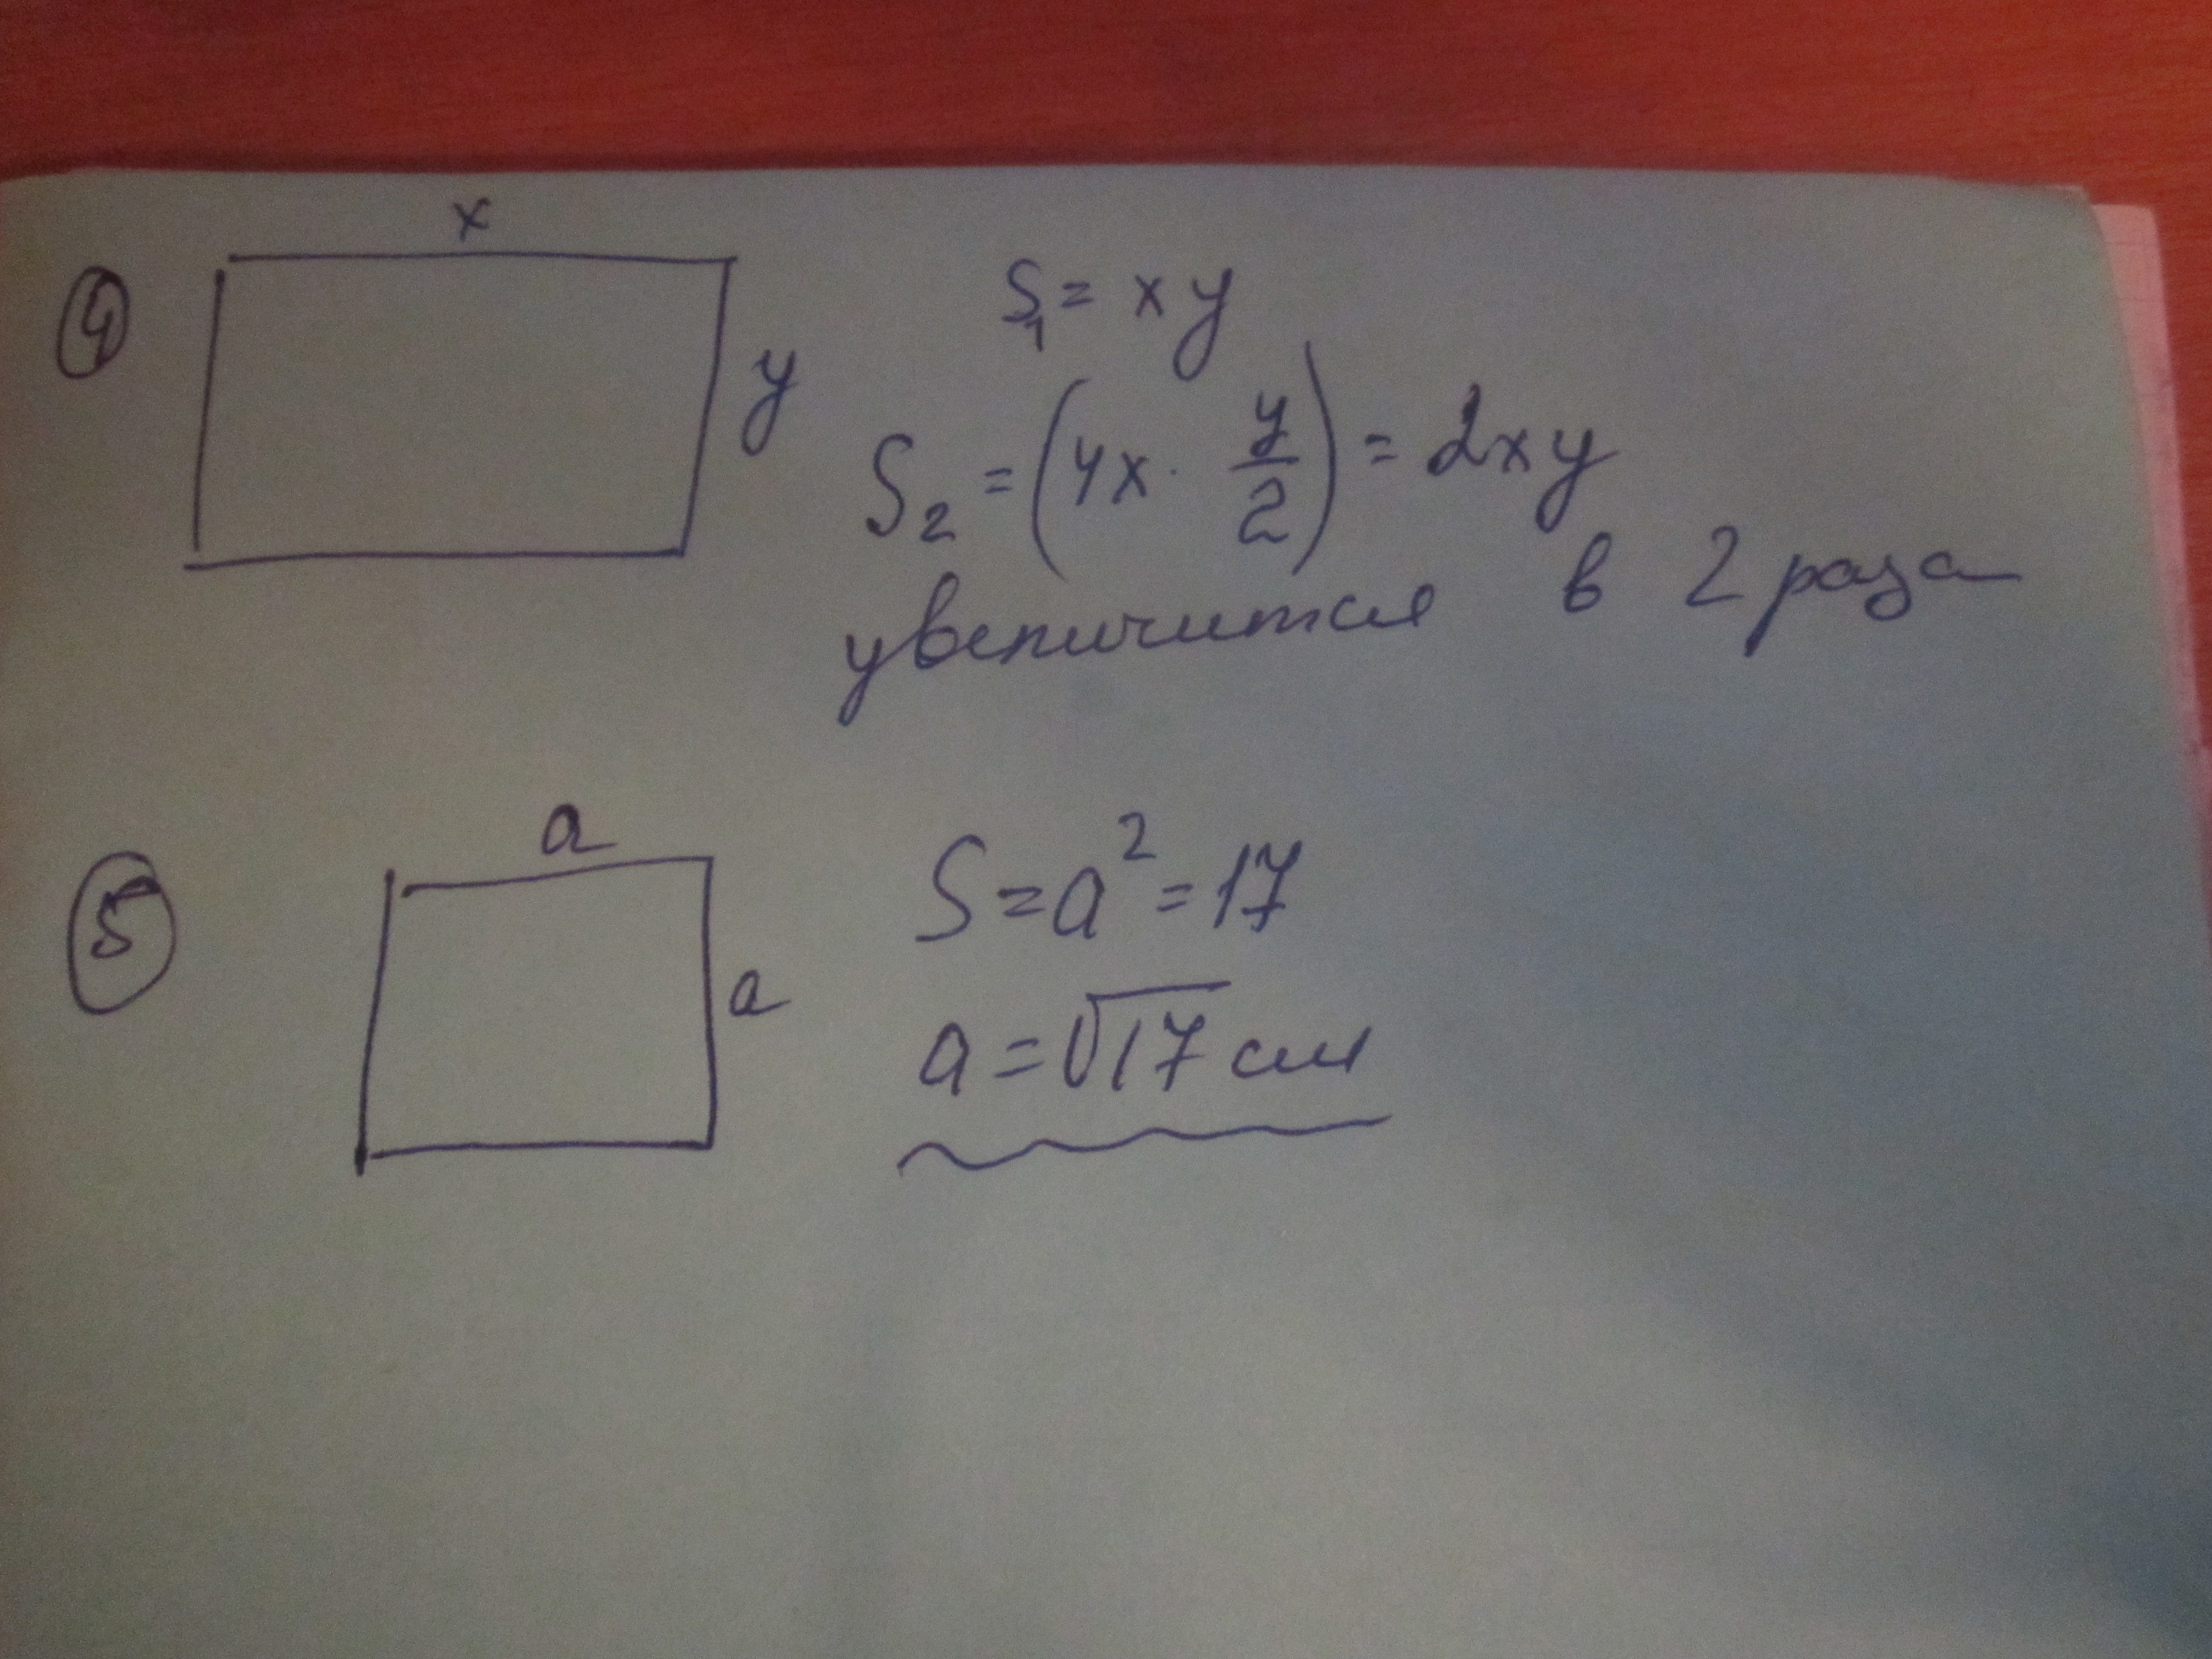 ④ x
y
S₁ = xy
S₂ = (4x · y/2) = 2xy
увеличится в 2 раза
⑤ a
a
S = a² = 17
a = √17 см